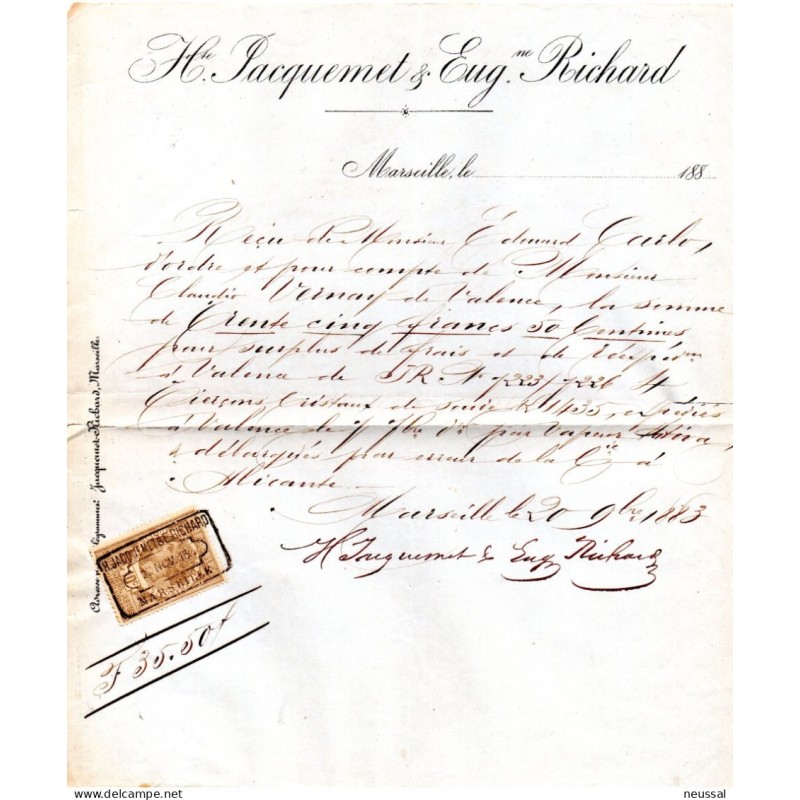 Hte. Jacquemet & Eugne. Richard
Marseille, le 188
Reçu de Monsieur Édouard Carlo,
d'ordre et pour compte de Monsieur
Claudio Vernay de Valence, la somme
de Trente cinq francs 50 Centimes
pour surplus de frais et de Réexpéon
à Valence de JR. No 7223/7226 4
Tierçons Cristaux de soude K 1435,
à Valence le 7 7bre dr par Vapeur
& débarqués par erreur de la Cie à
Alicante
Marseille le 20 9bre 1883
H Jacquemet & Eug Richard
Jacquemet-Richard, Marseille
H. JACQUEMET & E. RICHARD
NOV.
MARSEILLE
F 35.50
delcampe.net
neussal